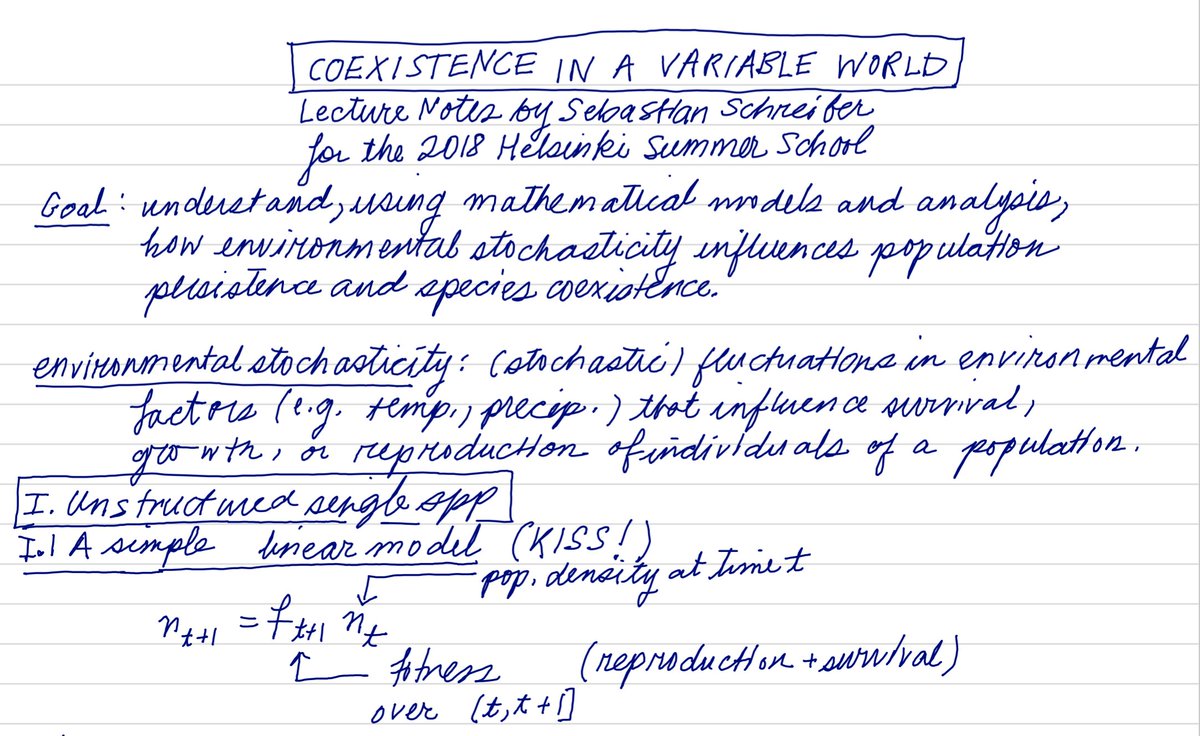 COEXISTENCE IN A VARIABLE WORLD
Lecture Notes by Sebastian Schreiber
for the 2018 Helsinki Summer School
Goal: understand, using mathematical models and analysis,
how environmental stochasticity influences population
persistence and species coexistence.
environmental stochasticity: (stochastic) fluctuations in environmental
factors (e.g. temp., precip.) that influence survival,
growth, or reproduction of individuals of a population.
I. Unstructured single spp
I.1 A simple linear model (KISS!)
pop. density at time t
n_{t+1} = f_{t+1} n_t
fitness (reproduction + survival)
over (t, t+1]